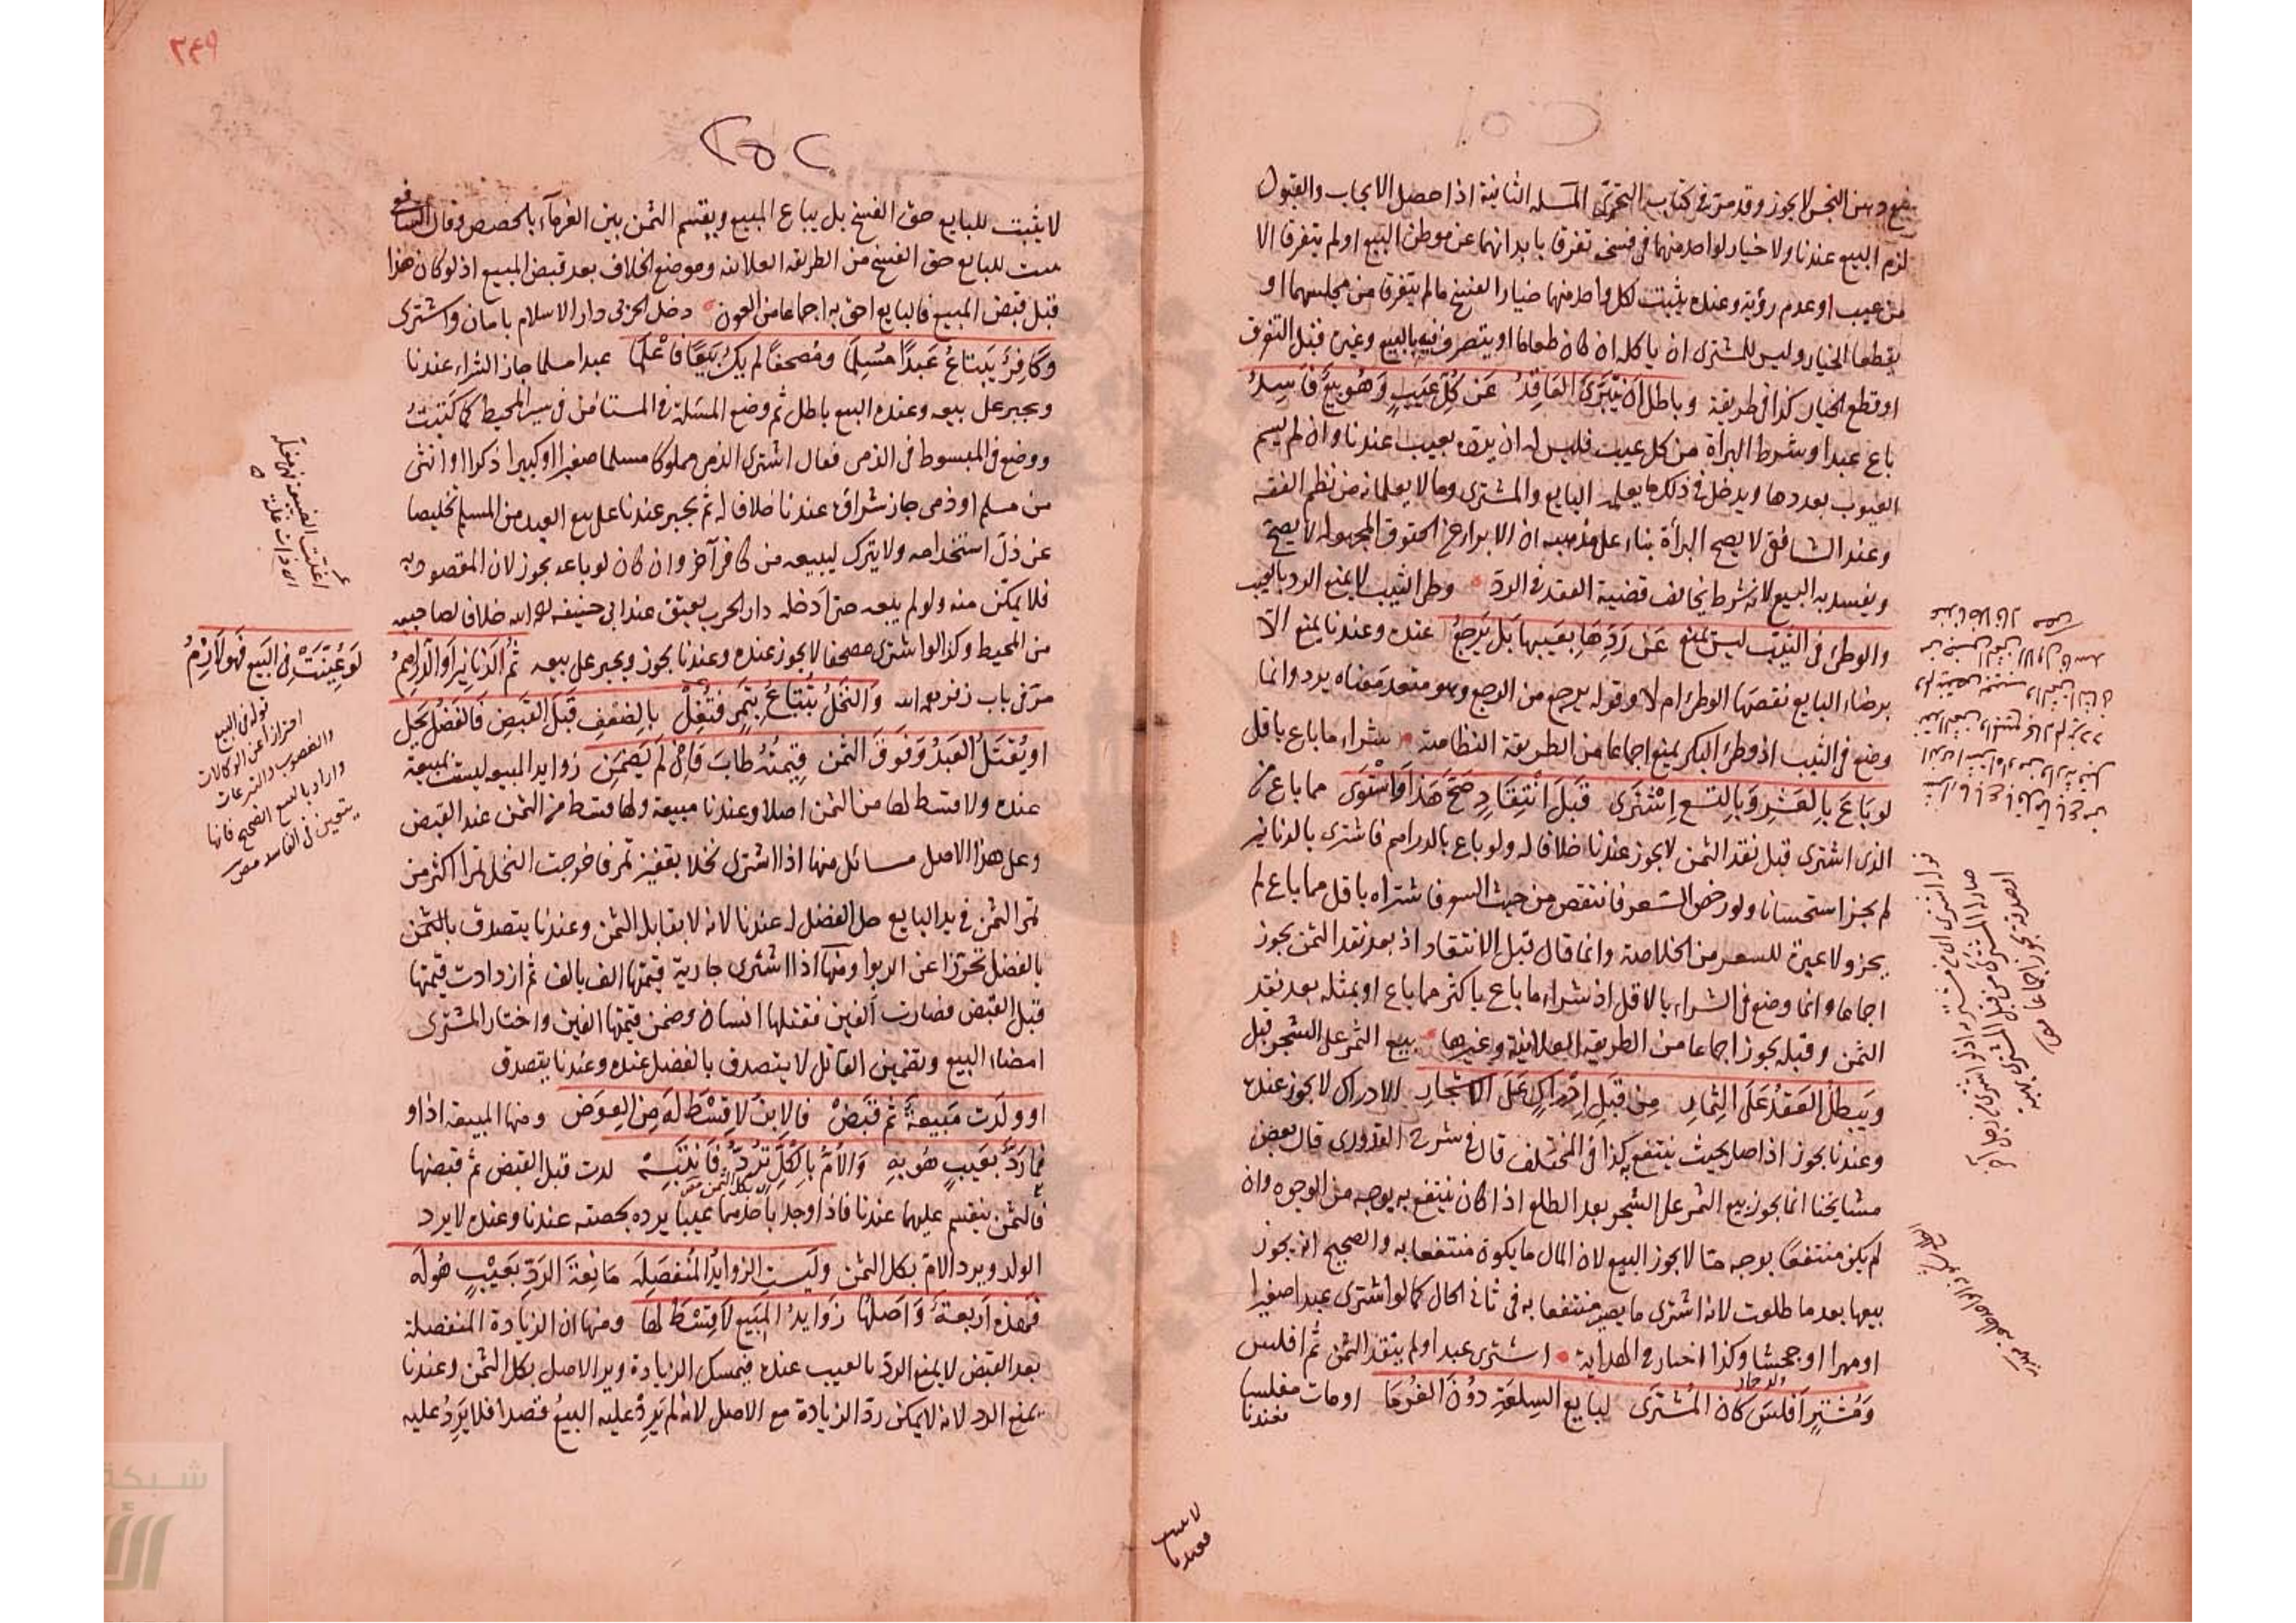 لا يجوز وقد مر في كتاب المسئلة الثانية اذا حصل الايجاب والقبول
لزم البيع عندنا ولا خيار لواحد منهما في فسخه تفرقا بابدانهما عن موطن البيع او لم يتفرقا الا
من عيب او عدم رؤية وعنده يثبت لكل واحد منهما خيار الفسخ ما لم يتفرقا من مجلسهما او
يقطعا الخيار وليس للمشترى ان ياكله ان كان طعاما او يتصرف فيه بالبيع وغيره قبل التفرق
او قطع الخيار كذا في طريقة وباطل ان يتبرى العاقد عن كل عيب وهو بيع فاسد
باع عبدا وشرط البرأة من كل عيب فليس له ان يرده بعيب عندنا وان لم يسم
العيوب بعددها ويدخل في ذلك ما يعلمه البايع والمشترى وما لا يعلمانه من نظم الفقه
وعند الشافعى لا يصح البرأة بناء على مذهبه ان الابراء عن الحقوق المجهولة لا يصح
ويفسد به البيع لانه شرط يخالف قضية العقد في الرد وطئ الثيب لا يمنع الرد بالعيب
والوطئ في الثيب ليس يمنع عن ردها بعيبها بل يرجع عنده وعندنا يمنع الا
برضاء البايع نقصها الوطئ ام لا وقوله يرجع من الرجع وهو متعد معناه يرد وانما
وضع في الثيب اذ وطئ البكر يمنع اجماعا من الطريقة النظامية شراء ما باع باقل
لو باع بالعشر وبالتسع اشترى قبل انتقاد صح هذا واستوى مما باع من
الذى اشترى قبل نقد الثمن لا يجوز عندنا خلافا له ولو باع بالدراهم فاشترى بالدنانير
لم يجز استحسانا ولو رخص السعر فانتقص من حيث السوق فاشتراه باقل مما باع لم
يجز ولا عبرة للسعر من الخلاصة وانما قال قبل الانتقاد اذ بعد نقد الثمن يجوز
اجماعا وانما وضع في الشراء بالاقل اذ شراء ما باع باكثر مما باع او بمثله بعد نقد
الثمن وقبله يجوز اجماعا من الطريقة العلائية وغيرها بيع الثمر على الشجر قبل
ويبطل العقد على الثمار من قبل ادراك على الاشجار الادراك لا يجوز عنده
وعندنا يجوز اذا صار بحيث ينتفع به كذا في المختلف قال في شرح القدورى قال بعض
مشايخنا انما يجوز بيع الثمر على الشجر بعد الطلع اذا كان ينتفع به بوجه من الوجوه وان
لم يكن منتفعا بوجه ما لا يجوز البيع لان المال ما يكون منتفعا به والصحيح انه يجوز
بيعها بعد ما طلعت لانه اشترى ما يصير منتفعا به في ثانى الحال كما لو اشترى عبدا صغيرا
او مهرا او جحشا وكذا اختار في الهداية اشترى عبدا ولم ينقد الثمن ثم افلس
ومشتر افلس كان المشترى لبايع السلعة دون الغرما او مات مفلسا
فعندنا
٢٤٩
٢٥٢
لا يثبت للبايع حق الفسخ بل يباع المبيع ويقسم الثمن بين الغرماء بالحصص وقال الشافعى
يثبت للبايع حق الفسخ من الطريقة العلائية وموضع الخلاف بعد قبض المبيع اذ لو كان هذا
قبل قبض المبيع فالبايع احق به اجماعا من العون دخل الحربى دار الاسلام بامان واشترى
وكافر يبتاع عبدا مسلما ومصحفا لم يك بيعا فاعلما عبدا مسلما جاز الشراء عندنا
ويجبر على بيعه وعنده البيع باطل ثم وضع المسئلة في المستامن في سير المحيط كما كتبت
ووضع في المبسوط في الذمى فقال اشترى الذمى مملوكا مسلما صغيرا او كبيرا ذكرا او انثى
من مسلم او ذمى جاز شراؤه عندنا خلافا له ثم يجبر عندنا على بيع العبد من المسلم تخليصا
عن ذل استخدامه ولا يترك ليبيعه من كافر آخر وان كان لو باعه يجوز لان المقصود به
فلا يمكن منه ولو لم يبعه حتى ادخله دار الحرب يعتق عند ابى حنيفة رحمه الله خلافا لصاحبيه
من المحيط وكذا لو اشترى مصحفا لا يجوز عنده وعندنا يجوز ويجبر على بيعه ثم الدنانير او الدراهم
لو عينت في البيع فهو لازم
مر في باب زفر رحمه الله والنخل يبتاع بتمر فتغل بالضعف قبل القبض فالفضل يحل
او يقتل العبد وفوق الثمن قيمته طاب وان لم يضمن زوايد المبيع ليست بمبيعة
عنده ولا قسط لها من الثمن اصلا وعندنا مبيعة ولها قسط من الثمن عند القبض
وعلى هذا الاصل مسائل منها اذا اشترى نخلا بقفيز تمر فاخرجت النخل تمرا اكثر من
تمر الثمن في يد البايع حل الفضل له عندنا لانه لا يقابل الثمن وعندنا يتصدق بالثمن
بالفضل تحرزا عن الربوا ومنها اذا اشترى جارية قيمتها الف بالف ثم ازدادت قيمتها
قبل القبض فصارت الفين فقتلها انسان وضمن قيمتها الفين واختار المشترى
امضاء البيع وتضمين القاتل لا يتصدق بالفضل عنده وعندنا يتصدق
او ولدت مبيعة ثم قبض فالابن لا قسط له من العوض ومنها المبيعة اذا و
فما رد بعيب هو به والام بالكل ترد فانتبه لدت قبل القبض ثم قبضها
فالثمن ينقسم عليهما عندنا فاذا وجد باحدهما عيبا يرده بحصته عندنا وعنده لا يرد
الولد ويرد الام بكل الثمن وليست الزوايد المنفصله مانعة الرد بعيب هو له
فهذه اربعة واصلها زوايد المبيع لا قسط لها ومنها ان الزيادة المنفصلة
بعد القبض لا يمنع الرد بالعيب عنده فيمسك الزيادة ويرد الاصل بكل الثمن وعندنا
يمنع الرد لانه لا يمكن رد الزيادة مع الاصل لانه لم يرد عليه البيع قصدا فلا يرد عليه
قوله في البيع
احترازا عن الوكالات
والغصوب والتبرعات
واراد بالبيع الصحيح فانها
يتعين في الفاسد
شبكة